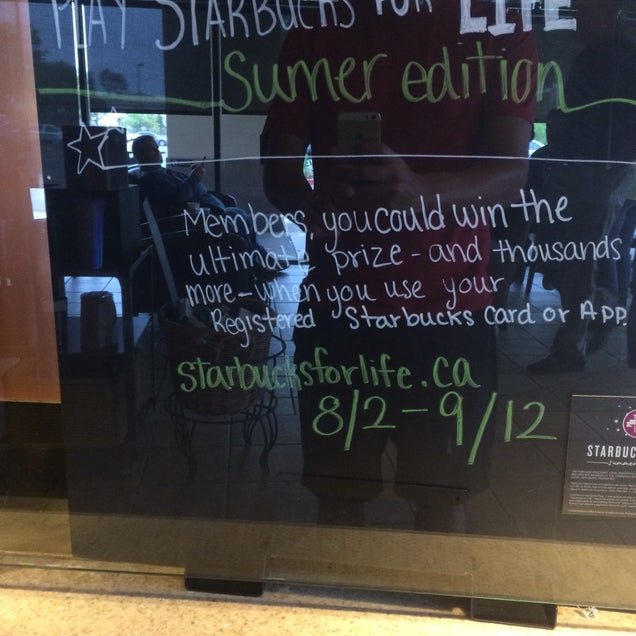 PLAY STARBUCKS FOR LIFE
Sumer edition
Members, you could win the
ultimate prize - and thousands
more - when you use your
Registered Starbucks Card or App.
starbucksforlife.ca
8/2 - 9/12
STARBUC